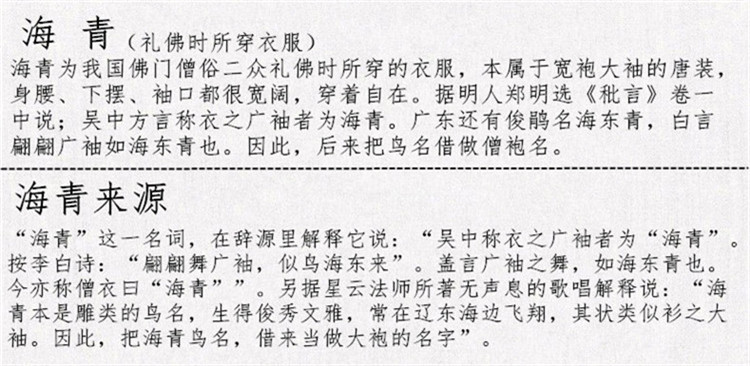 海 青（礼佛时所穿衣服）
海青为我国佛门僧俗二众礼佛时所穿的衣服，本属于宽袍大袖的唐装，
身腰、下摆、袖口都很宽阔，穿着自在。据明人郑明选《秕言》卷一
中说；吴中方言称衣之广袖者为海青。广东还有俊鹃名海东青，白言
翩翩广袖如海东青也。因此，后来把鸟名借做僧袍名。
海青来源
“海青”这一名词，在辞源里解释它说：“吴中称衣之广袖者为“海青”。
按李白诗：“翩翩舞广袖，似鸟海东来”。盖言广袖之舞，如海东青也。
今亦称僧衣曰“海青””。另据星云法师所著无声息的歌唱解释说：“海
青本是雕类的鸟名，生得俊秀文雅，常在辽东海边飞翔，其状类似衫之大
袖。因此，把海青鸟名，借来当做大袍的名字”。